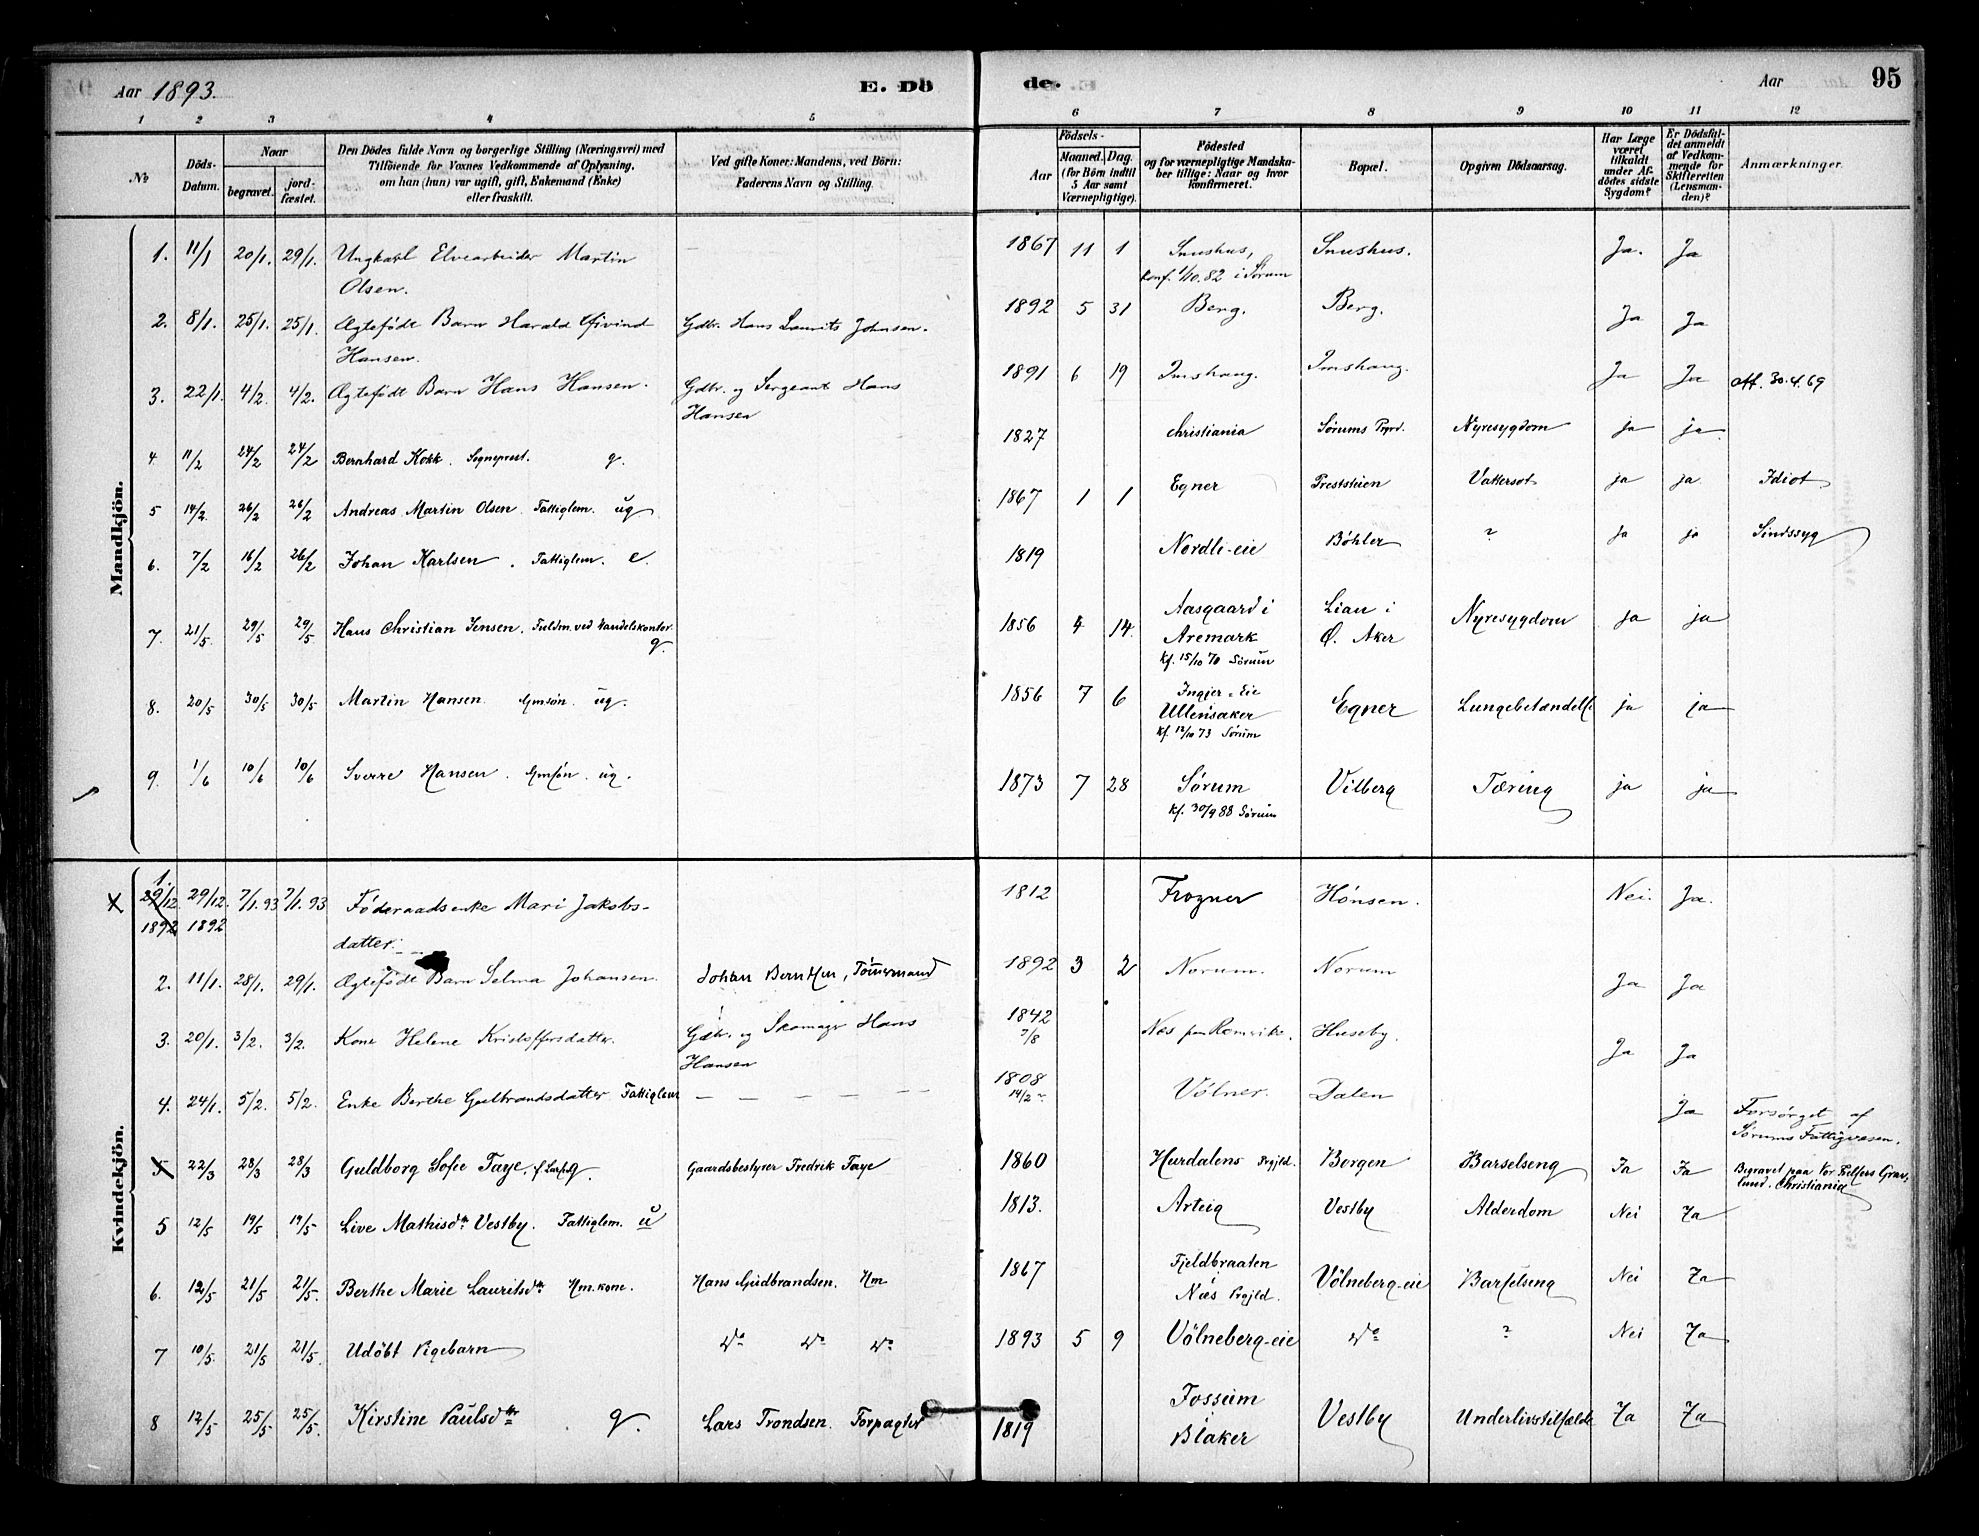 Aar 1893. E. Dö de. Aar 95
1 2 3 4 5 6 7 8 9 10 11 12
No
Döds-Datum.
Naar
begravet.
jord-fæstet.
Den Dödes fulde Navn og borgerlige Stilling (Næringsvei) med
Tilföiende for Voxnes Vedkommende af Oplysning,
om han (hun) var ugift, gift, Enkemand (Enke)
eller fraskilt.
Ved gifte Koner: Mandens, ved Börn:
Faderens Navn og Stilling.
Födsels-
Aar
Maaned. Dag.
(for Börn indtil
5 Aar samt
Værnepligtige).
Födested
og for værnepligtige Mandska-
ber tillige: Naar og hvor
konfirmeret.
Bopæl.
Opgiven Dödsaarsag.
Har Læge
været
tilkaldt
under Af-
dödes sidste
Sygdom?
Er Dödsfal-
det anmeldt
af Vedkom-
mende for
Skifteretten
(Lensman-
den)?
Anmærkninger.
Mandkjön.
1. 11/1 20/1. 29/1. Ungkarl Elvearbeider Martin 1867 11 1 Snushus, Snushus. Ja. Ja
Olsen. Konf. 1/10.82 i Sørum
2. 8/1. 25/1. 25/1. Ægtefødt Barn Harald Øivind Gdbr. Hans Laurits Johnsen. 1892 5 31 Berg. Berg. Ja Ja
Hansen.
3. 22/1. 4/2. 4/2. Ægtefødt Barn Hans Hansen. Gdbr. og Sergeant Hans 1891 6 19 Imshaug. Imshaug. Ja Ja Att. 30.4.69
Hansen
4. 11/2 24/2 24/2 Bernhard Kokk. Sogneprest. g. 1827 Christiania Sørums Prgrd. Nyresygdom ja ja.
5 14/2. 26/2 26/2 Andreas Martin Olsen. Fattiglem. ug 1867 1 1 Egner Preststeien Vattersot ja ja. Idiot
6. 7/2 16/2 26/2 Johan Karlsen. Fattiglem. e. 1819 Nordli-eie Bøhler ? ja ja Sindssyg
7. 21/5. 29/5 29/5 Hans Christian Jensen. Fuldm. ved Handelskontor g. 1856 4 14 Aasgaard i Lian i Nyresygdom ja ja
Aremark Ø. Aker
kf. 15/10 70 Sørum
8. 20/5 30/5 30/5 Martin Hansen. Gmsøn. ug. 1856 7 6 Ingjer-Eie Egner Lungebetændelse ja ja
Ullensaker
kf. 12/10 73 Sørum
9. 1/6 10/6 10/6 Sverre Hansen. Gmsøn. ug. 1873 7 28 Sørum Vilberg Tæring ja ja
kf. 30/9 88 Sørum
Kvindekjön.
1. 29/12 1892 29/12. 1892 7/1.93 7/1.93 Føderaadsenke Mari Jakobs- 1812 Frogner Hønsen. Nei. Ja.
datter.
2. 11/1. 28/1. 29/1. Ægtefødt Barn Selma Johansen. Johan Berntsen, Tømermand 1892 3 2 Norum. Norum Ja Ja
3. 20/1. 3/2. 3/2. Kone Helene Kristoffersdatter. Gdbr. og Skomager Hans 1842 7/8 Nes paa Romerike. Huseby. Ja Ja
Hansen
4. 24/1. 5/2. 5/2. Enke Berthe Gulbrandsdatter Fattiglem — — — — — 1808 14/2 Vølner. Dalen Ja Forsørget af
Sørums Fattigvæsen.
5 22/3 28/3 28/3 Guldborg Sofie Faye, g. Gaardsbestyrer Fredrik Faye 1860 Hurdalens Prgjld. Borgen Barselseng Ja Ja Begravet paa Vor Frelsers Grav-
lund. Christiania
5 12/5 19/5 19/5 Live Mathisdtr. Vestby. Fattiglem. u 1813. Arteig Vestby Alderdom Nei Ja
6. 12/5 21/5 21/5. Berthe Marie Lauritsdtr. Hm. kone. Hans Gudbrandsen. Hm 1867 Fjeldbraaten Vølneberg-eie Barselseng Nei Ja
Næs Prgjld.
7 10/5. 21/5 21/5. Udøbt Pigebarn do do do 1893 5 9 Vølneberg-eie do ? Nei Ja
8 12/5 25/5 25/5. Kirstine Paulsdtr. g. Lars Trondsen. Forpagter 1819 Fossum Vestby Underlivstilfælde Ja Ja
Blaker